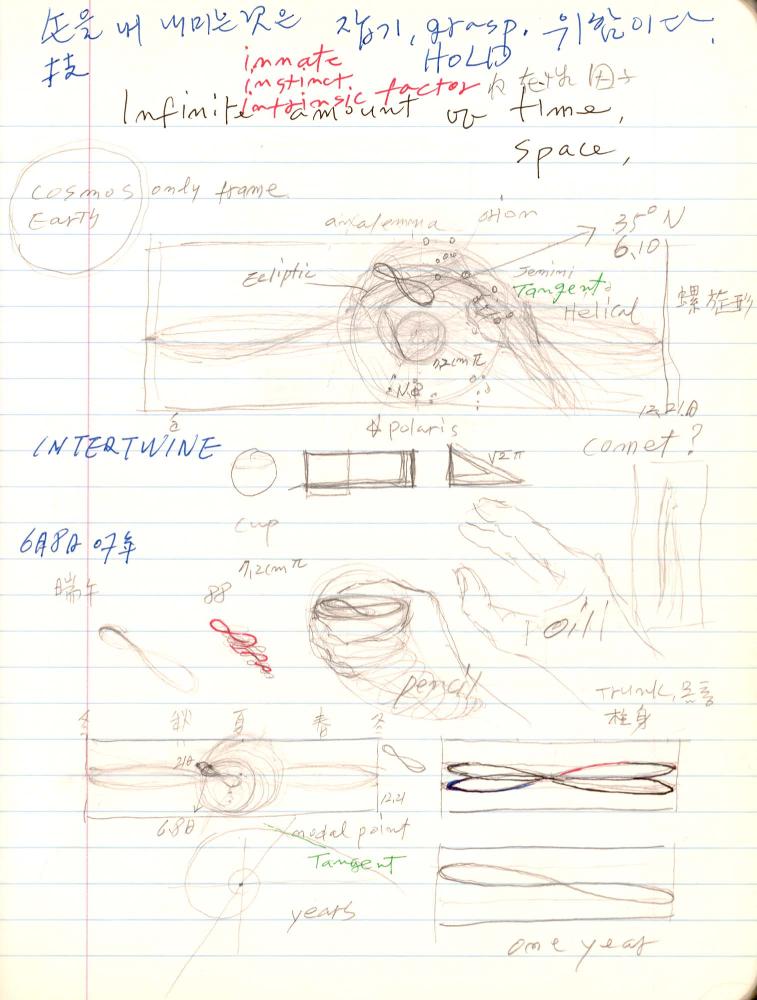 손을 내 내미는것은 잡기, grasp. 위함이다.
HOLD
技
innate
instinct.
intrinsic factor 内在性 因子
Infinite amount of time,
space,
cosmos only frame.
Earth
analemma orion 35° N
6,10
Ecliptic Jemimi
Tangent
Helical 螺旋形
7,2cm π
N.P
12,21日
polaris
INTERTWINE comet?
√2 π
cup
6月8日 07年
7,2cm π
瑞午 88
oill
pencil
Trunk, 몸통
柱身
冬 秋 夏 春 冬
21日
12,21
6.8日 nodal point
Tangent
years
one year